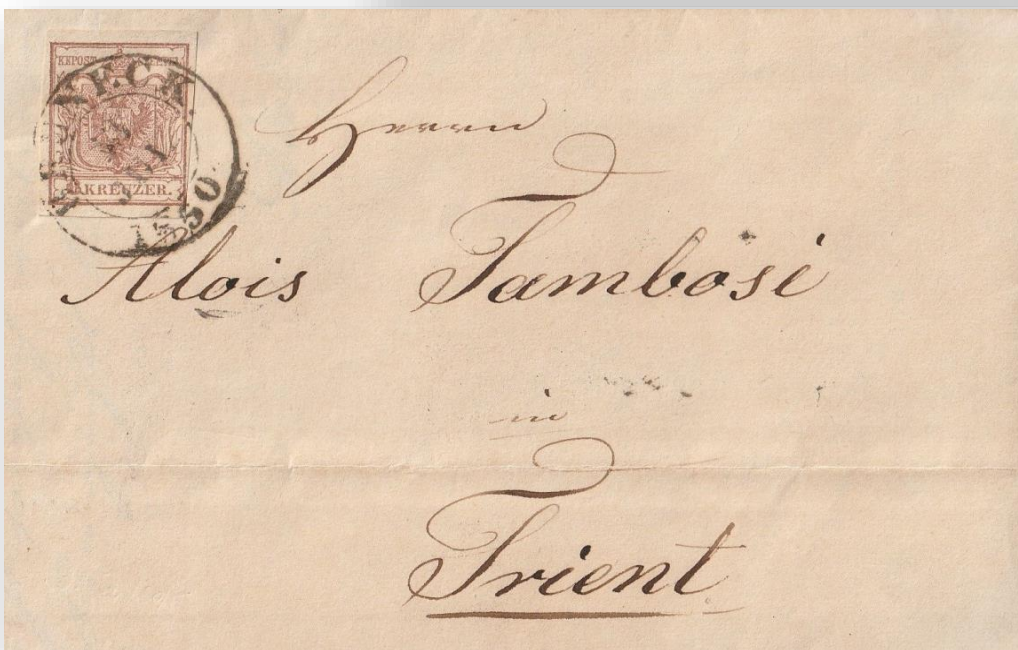 KREUZER.
1850
Herrn
Alois Tambosi
in
Trient